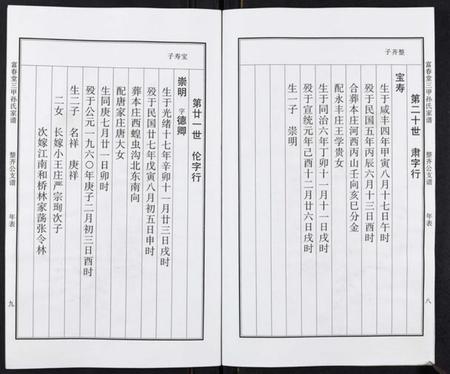 整齐子
富春堂三甲孙氏家谱 整齐公支谱 年表 八
第二十世 肃字行
宝寿
生于咸丰四年甲寅八月十七日午时
殁于民国五年丙辰六月十三日酉时
合葬本庄河西丙山壬向亥巳分金
配永丰庄王学贵女
生于同治六年丁卯十一月十一日戌时
殁于宣统元年己酉十二月廿六日戌时
生一子 崇明
宝寿子
第廿一世 伦字行
崇明 字德卿
生于光绪十七年辛卯十一月廿三日戌时
殁于民国廿七年戊寅八月初五日申时
葬本庄西蝗虫沟北东南向
配唐家庄唐大女
生同庚七月廿一日卯时
殁于公元一九六〇年庚子二月初三日酉时
生二子 名祥 庚祥
二女 长嫁小王庄严宗珣次子
次嫁江南和桥林家荡张令林
富春堂三甲孙氏家谱 整齐公支谱 年表 九